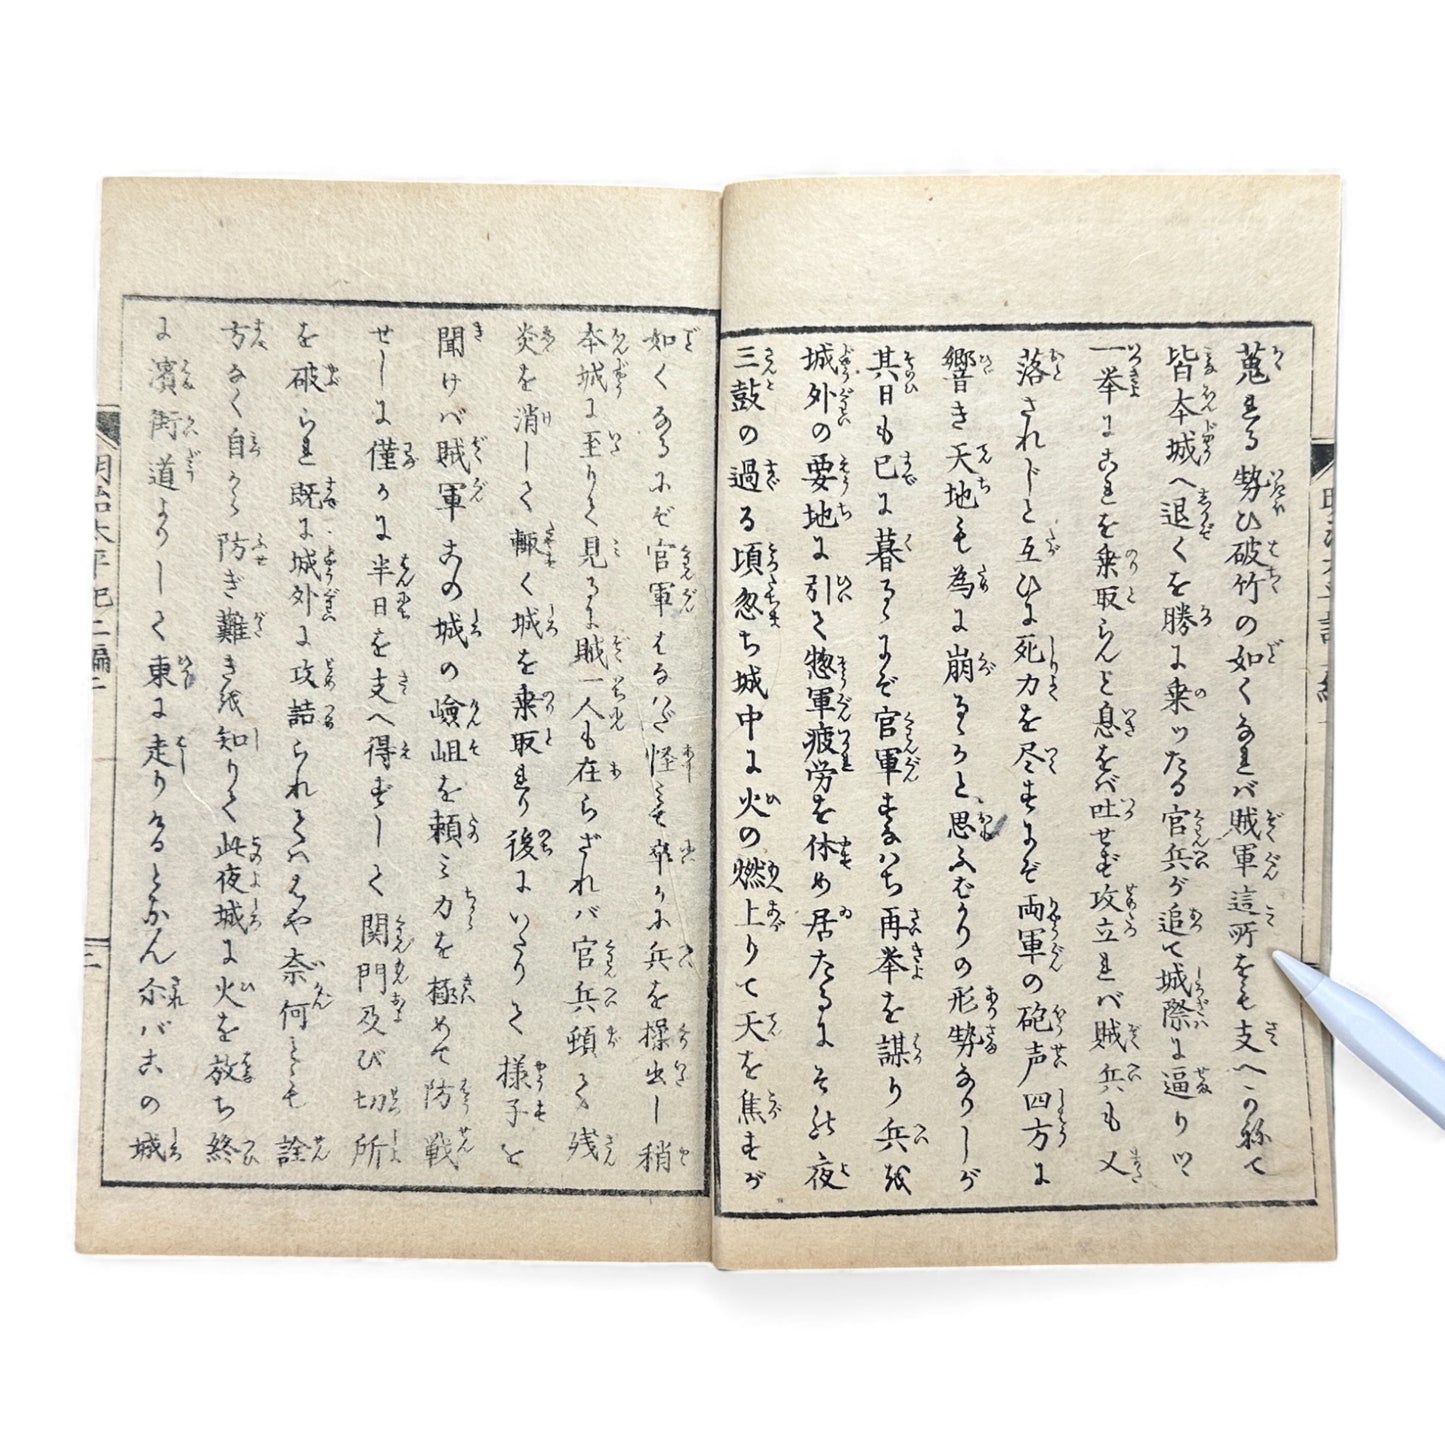 蒐まる勢ひ破竹の如くなれバ賊軍這所をも支へかねて
皆本城へ退くを勝に乗ツたる官兵が追て城際に逼りツヽ
一挙にこれを乗取らんと息をバ吐せず攻立れバ賊兵も又
落されじと互ひに死力を尽すにぞ両軍の砲声四方に
響き天地も為に崩るゝかと思ふばかりの形勢なりしが
其日も已に暮るゝにぞ官軍すなハち再挙を謀り兵を
城外の要地に引て惣軍疲労を休め居たるにその夜
三鼓の過る頃忽ち城中に火の燃上りて天を焦すが
如くなるにぞ官軍はるハだ怪しミ卒かに兵を操出し稍
本城に至りて見るに賊一人も在らざれバ官兵頓て残
炎を消して輙く城を乗取れり後にいたりて様子を
聞けバ賊軍この城の嶮岨を頼ミ力を極めて防戦
せしに僅かに半日を支へ得ずして関門及び切所
を破られ既に城外に攻詰られてハもはや奈何とも詮
方なく自から防ぎ難きを知りて此夜城に火を放ち終
に濱街道よりして東に走りけるとなん尓バこの城
明治太平記二編二
三